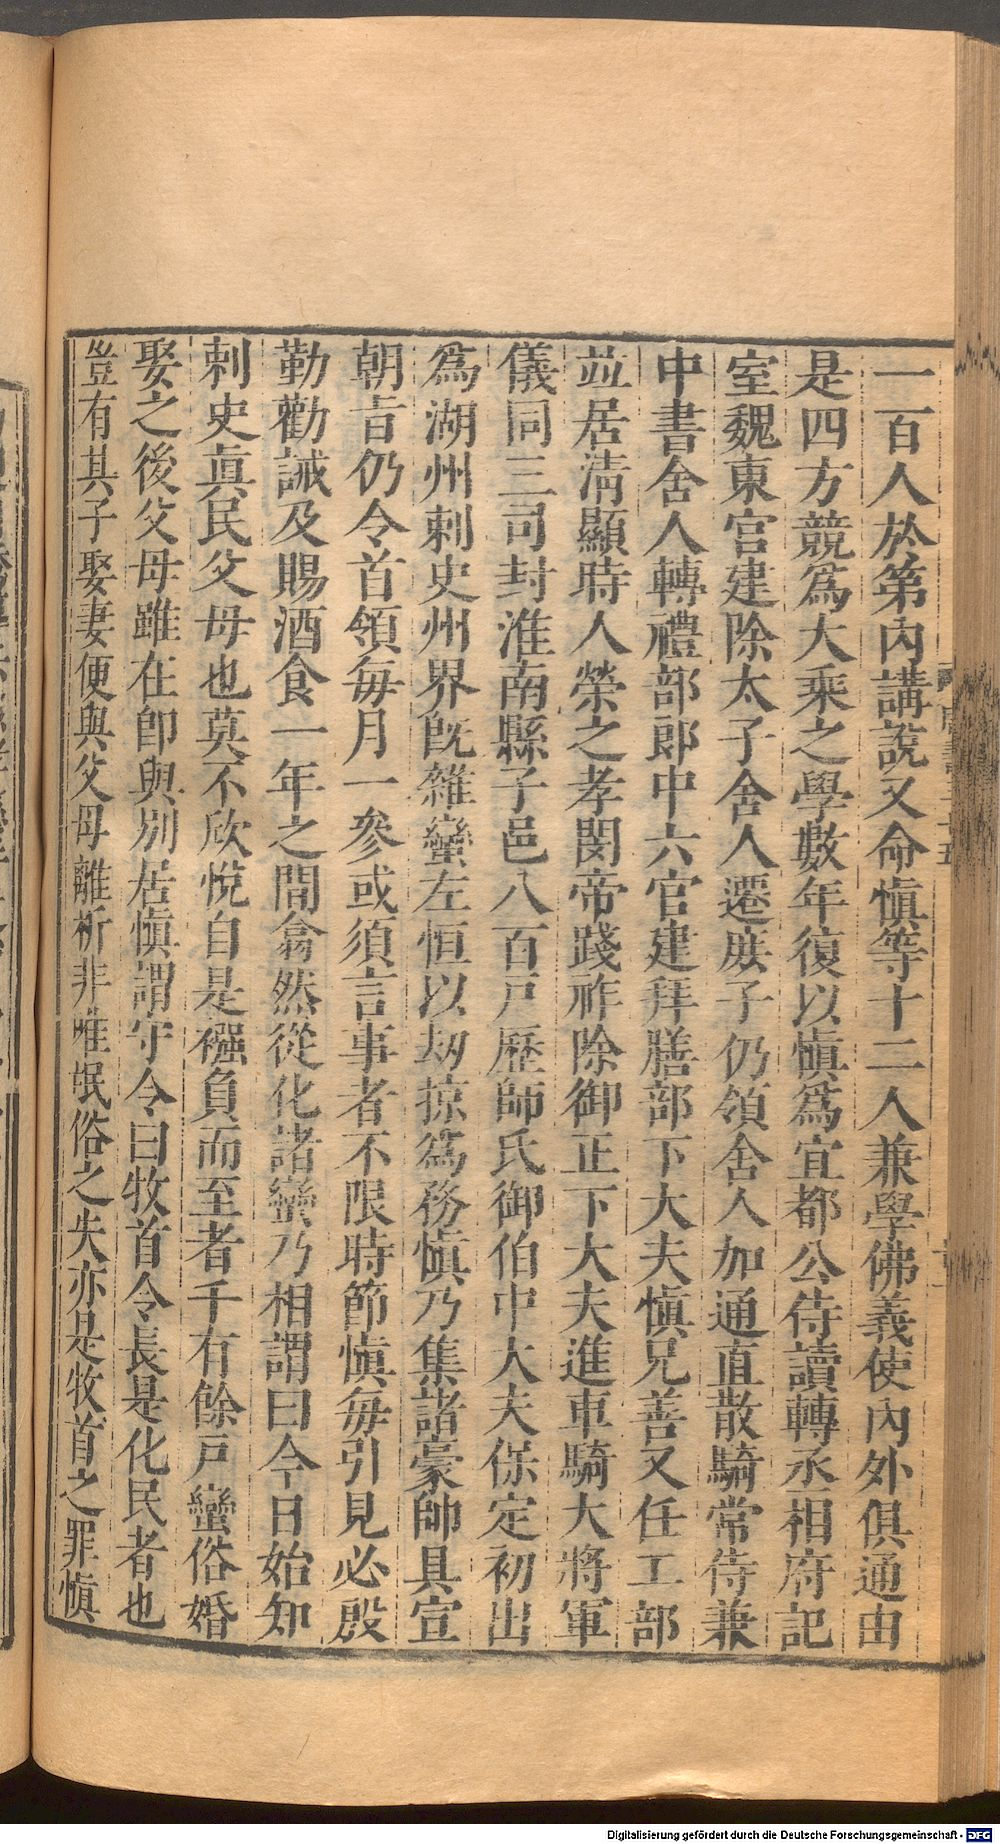 一百人於第內講說又命愼等十二人兼學佛義使內外俱通由
是四方競爲大乘之學數年復以愼爲宜都公侍讀轉丞相府記
室魏東宮建除太子舍人遷庶子仍領舍人加通直散騎常侍兼
中書舍人轉禮部郎中六官建拜膳部下大夫愼兄善又任工部
並居淸顯時人榮之孝閔帝踐祚除御正下大夫進車騎大將軍
儀同三司封淮南縣子邑八百戸歷師氏御伯中大夫保定初出
爲湖州刺史州界旣雜蠻左恒以刼掠爲務愼乃集諸豪帥具宣
朝旨仍令首領每月一參或須言事者不限時節愼每引見必殷
勤勸誡及賜酒食一年之間翕然從化諸蠻乃相謂曰今日始知
刺史眞民父母也莫不欣悅自是襁負而至者千有餘戸蠻俗婚
娶之後父母雖在卽與別居愼謂守令曰牧首令長是化民者也
豈有其子娶妻便與父母離析非唯氓俗之失亦是牧首之罪愼
Digitalisierung gefördert durch die Deutsche Forschungsgemeinschaft - DFG